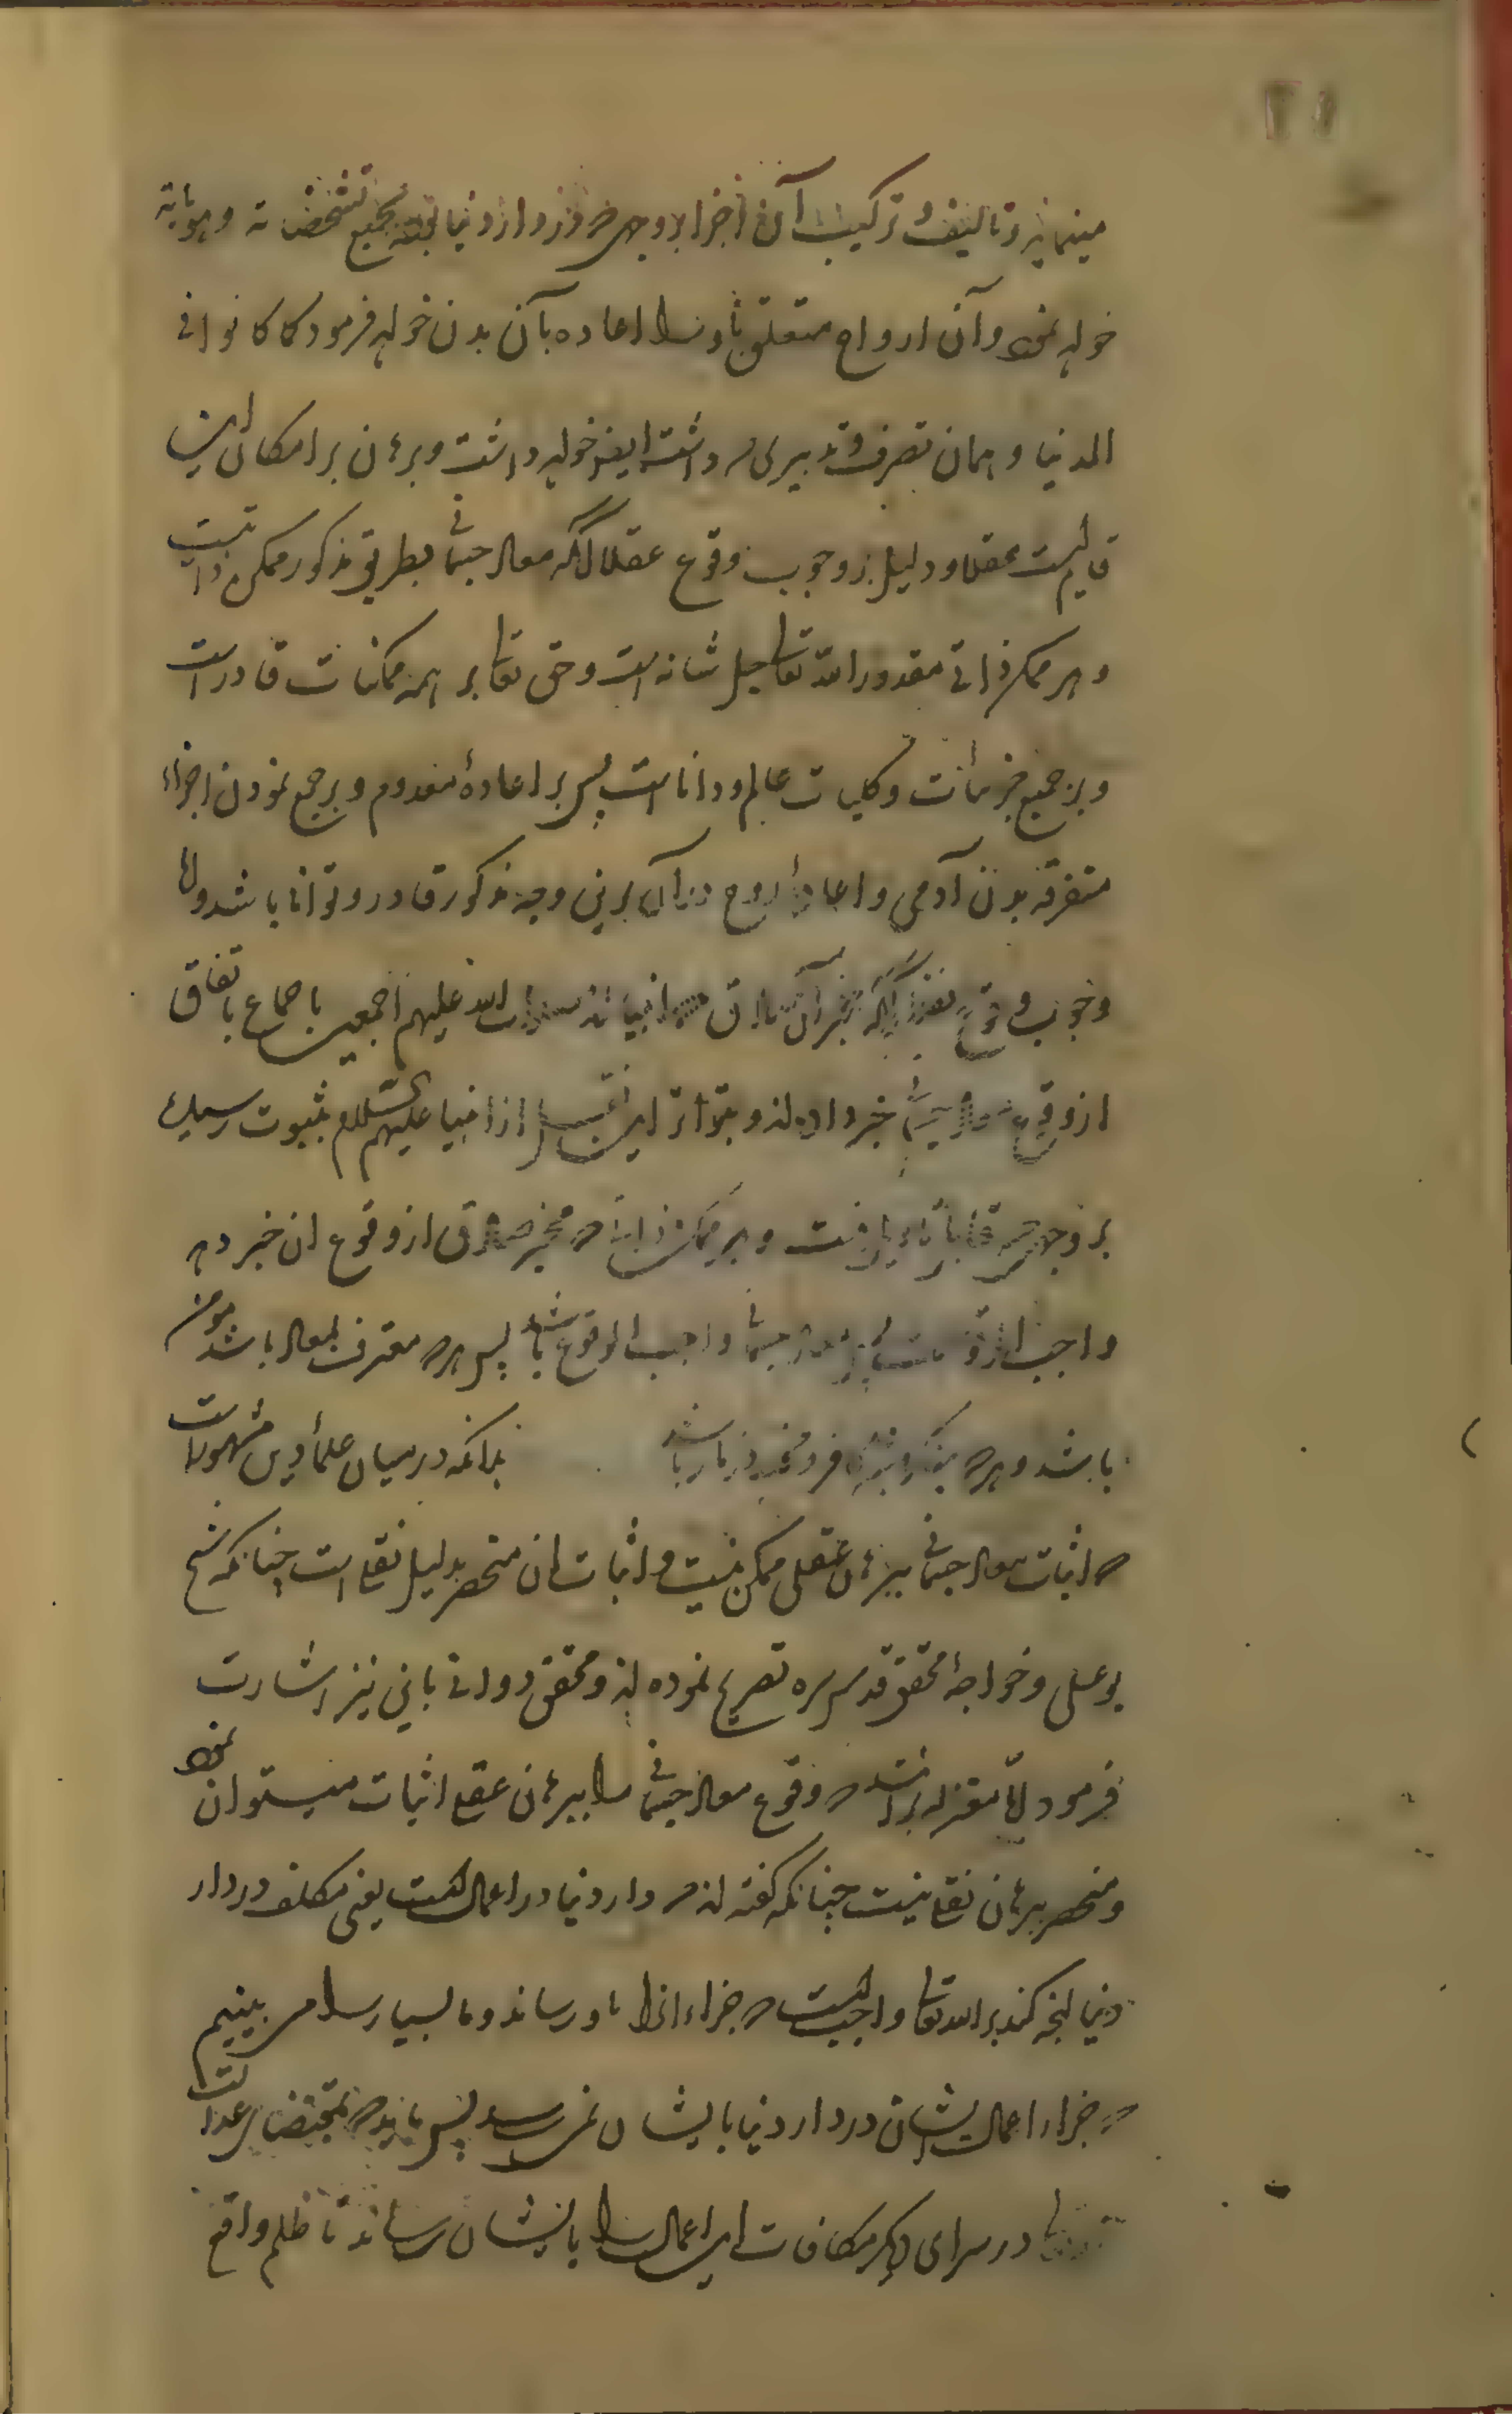 مینماید و تالیف و ترکیب آن اجزا بر وجهی که در دار دنیا بوده بجمیع تشخصاته و هویاته
خواهد نمود و آن ارواح متعلق باو را اعاده بآن بدن خواهد فرمود کما کانوا فی
الدنیا و همان تصرف و تدبیری که داشت ایضا خواهد داشت و برهان بر امکان این
قایم است عقلا و دلیل بر وجوب وقوع عقلا آنکه معاد جسمانی بطریق مذکور ممکن ذاتیست
و هر ممکن ذاتی مقدور الله تعالی جل شانه است و حق تعالی بر همه ممکنات قادر است
و بر جمیع جزئیات و کلیات عالم و دانا است پس بر اعادهٔ معدوم و بر جمع نمودن اجزاء
متفرقه بدن آدمی و اعادهٔ روح در آن برین وجه مذکور قادر و توانا باشد و اما
وجوب وقوع نقلا آنکه مخبران صادق که انبیااند صلوات الله علیهم اجمعین باجماع باتفاق
از وقوع معاد جسمانی خبر داده‌اند و بتواتر این از انبیا علیهم السلام بثبوت رسیده
بر وجهی که قابل تاویل نیست و هر ممکن ذاتی که مخبر صادق از وقوع ان خبر دهد
واجب الوقوعست پس معاد جسمانی واجب الوقوع باشد پس هر که معترف بمعاد باشد مومن
باشد و هر که منکر وقوع کافر و مخلد در نار باشد بدانکه در میان علمأ دین مشهور است
که اثبات معاد جسمانی ببرهان عقلی ممکن نیست و اثبات ان منحصر بدلیل نقلی است چنانکه شیخ
بو علی و خواجهٔ محقق قدس سره تصریح نموده‌اند و محقق دوانی باین نیز اشارت
فرمود اما معتزله برانند که وقوع معاد جسمانی را ببرهان عقلی اثبات میتوان نمود
و منحصر ببرهان نقلی نیست چنانکه گفته‌اند که دار دنیا دار اعمال است یعنی مکلف در دار
دنیا آنچه کند بر الله تعالی واجب است که جزاء انرا باو رساند و ما بسیار را می بینیم
که جزاء اعمال ایشان در دار دنیا بایشان نمی رسد پس باید که بمقتضای عدالت
در سرای دیگر مکافات این اعمال را بایشان رساند تا ظلم واقع